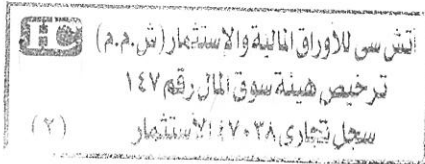 اتش سى للأوراق المالية والإستثمار (ش.م.م)
ترخيص هيئة سوق المال رقم ١٤٧
سجل تجارى ١٤٧٠٣٨ الأستثمار
(٢)